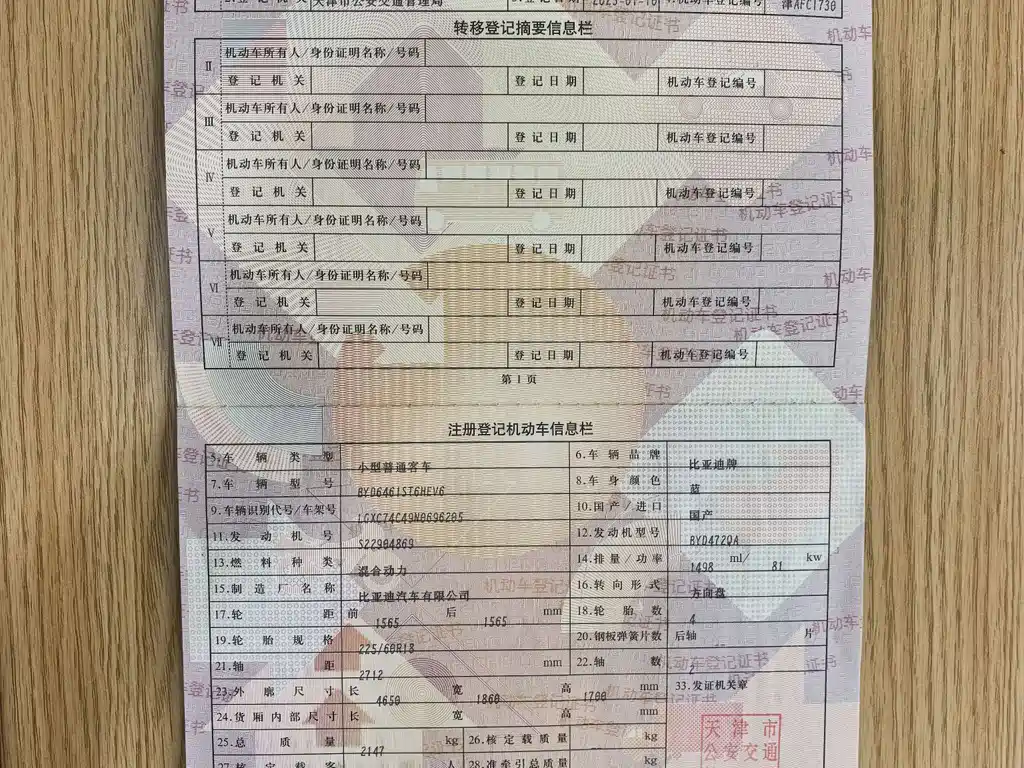 天津市公安交通管理局 登记日期 2023-01-10 4.机动车登记编号 津AFC1730
转移登记摘要信息栏
Ⅱ 机动车所有人/身份证明名称/号码
登记机关 登记日期 机动车登记编号
Ⅲ 机动车所有人/身份证明名称/号码
登记机关 登记日期 机动车登记编号
Ⅳ 机动车所有人/身份证明名称/号码
登记机关 登记日期 机动车登记编号
Ⅴ 机动车所有人/身份证明名称/号码
登记机关 登记日期 机动车登记编号
Ⅵ 机动车所有人/身份证明名称/号码
登记机关 登记日期 机动车登记编号
Ⅶ 机动车所有人/身份证明名称/号码
登记机关 登记日期 机动车登记编号
第 1 页
注册登记机动车信息栏
5.车辆类型 小型普通客车 6.车辆品牌 比亚迪牌
7.车辆型号 BYD6461ST6HEV6 8.车身颜色 蓝
9.车辆识别代号/车架号 LGXC74C49N0696205 10.国产/进口 国产
11.发动机号 S22904869 12.发动机型号 BYD472QA
13.燃料种类 混合动力 14.排量/功率 1498 ml/ 81 kw
15.制造厂名称 比亚迪汽车有限公司 16.转向形式 方向盘
17.轮距 前 1565 后 1565 mm 18.轮胎数 4
19.轮胎规格 225/60R18 20.钢板弹簧片数 后轴 片
21.轴距 2712 mm 22.轴数 2
23.外廓尺寸 长 4650 宽 1860 高 1700 mm 33.发证机关章
24.货厢内部尺寸 长 宽 高 mm
25.总质量 2147 kg 26.核定载质量 kg
27.核定载客 人 28.准牵引总质量 kg
天津市
公安交通